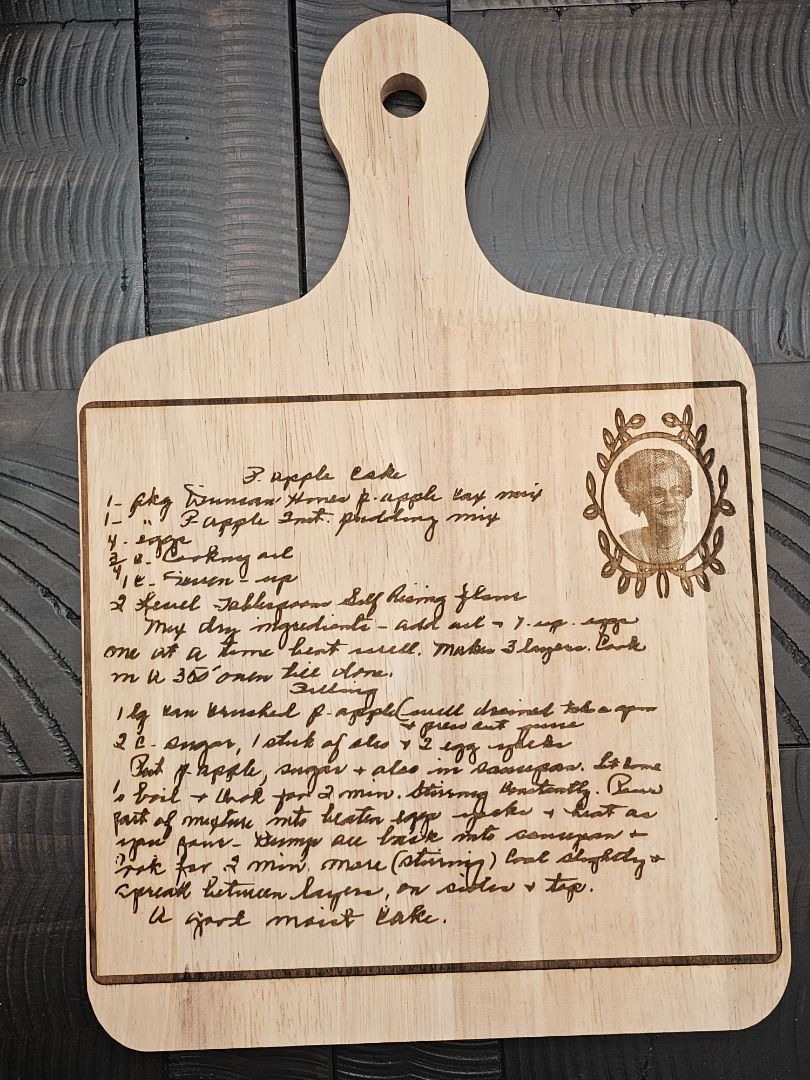 P. apple Cake
1- pkg Duncan Hines p. apple cake mix
1- " P. apple Inst. pudding mix
4- eggs
3/4 c. Cooking oil
1 c. Seven-up
2 Level Tablespoons Self Rising flour
Mix dry ingredients - add oil + 7-up. eggs
one at a time beat well. Makes 3 layers. Cook
in a 350° oven till done.
Filling
1 lg can crushed p. apple (well drained take a spoon
+ press out juice
2 C. sugar, 1 stick of oleo + 2 egg yolks
Put p. apple, sugar + oleo in saucepan. Let come
to boil + cook for 2 min. Stirring constantly. Pour
part of mixture into beaten egg yolks + beat as
you pour - Dump all back into saucepan +
cook for 2 min. more (stirring) Cool slightly +
spread between layers, on sides + top.
A good moist cake.